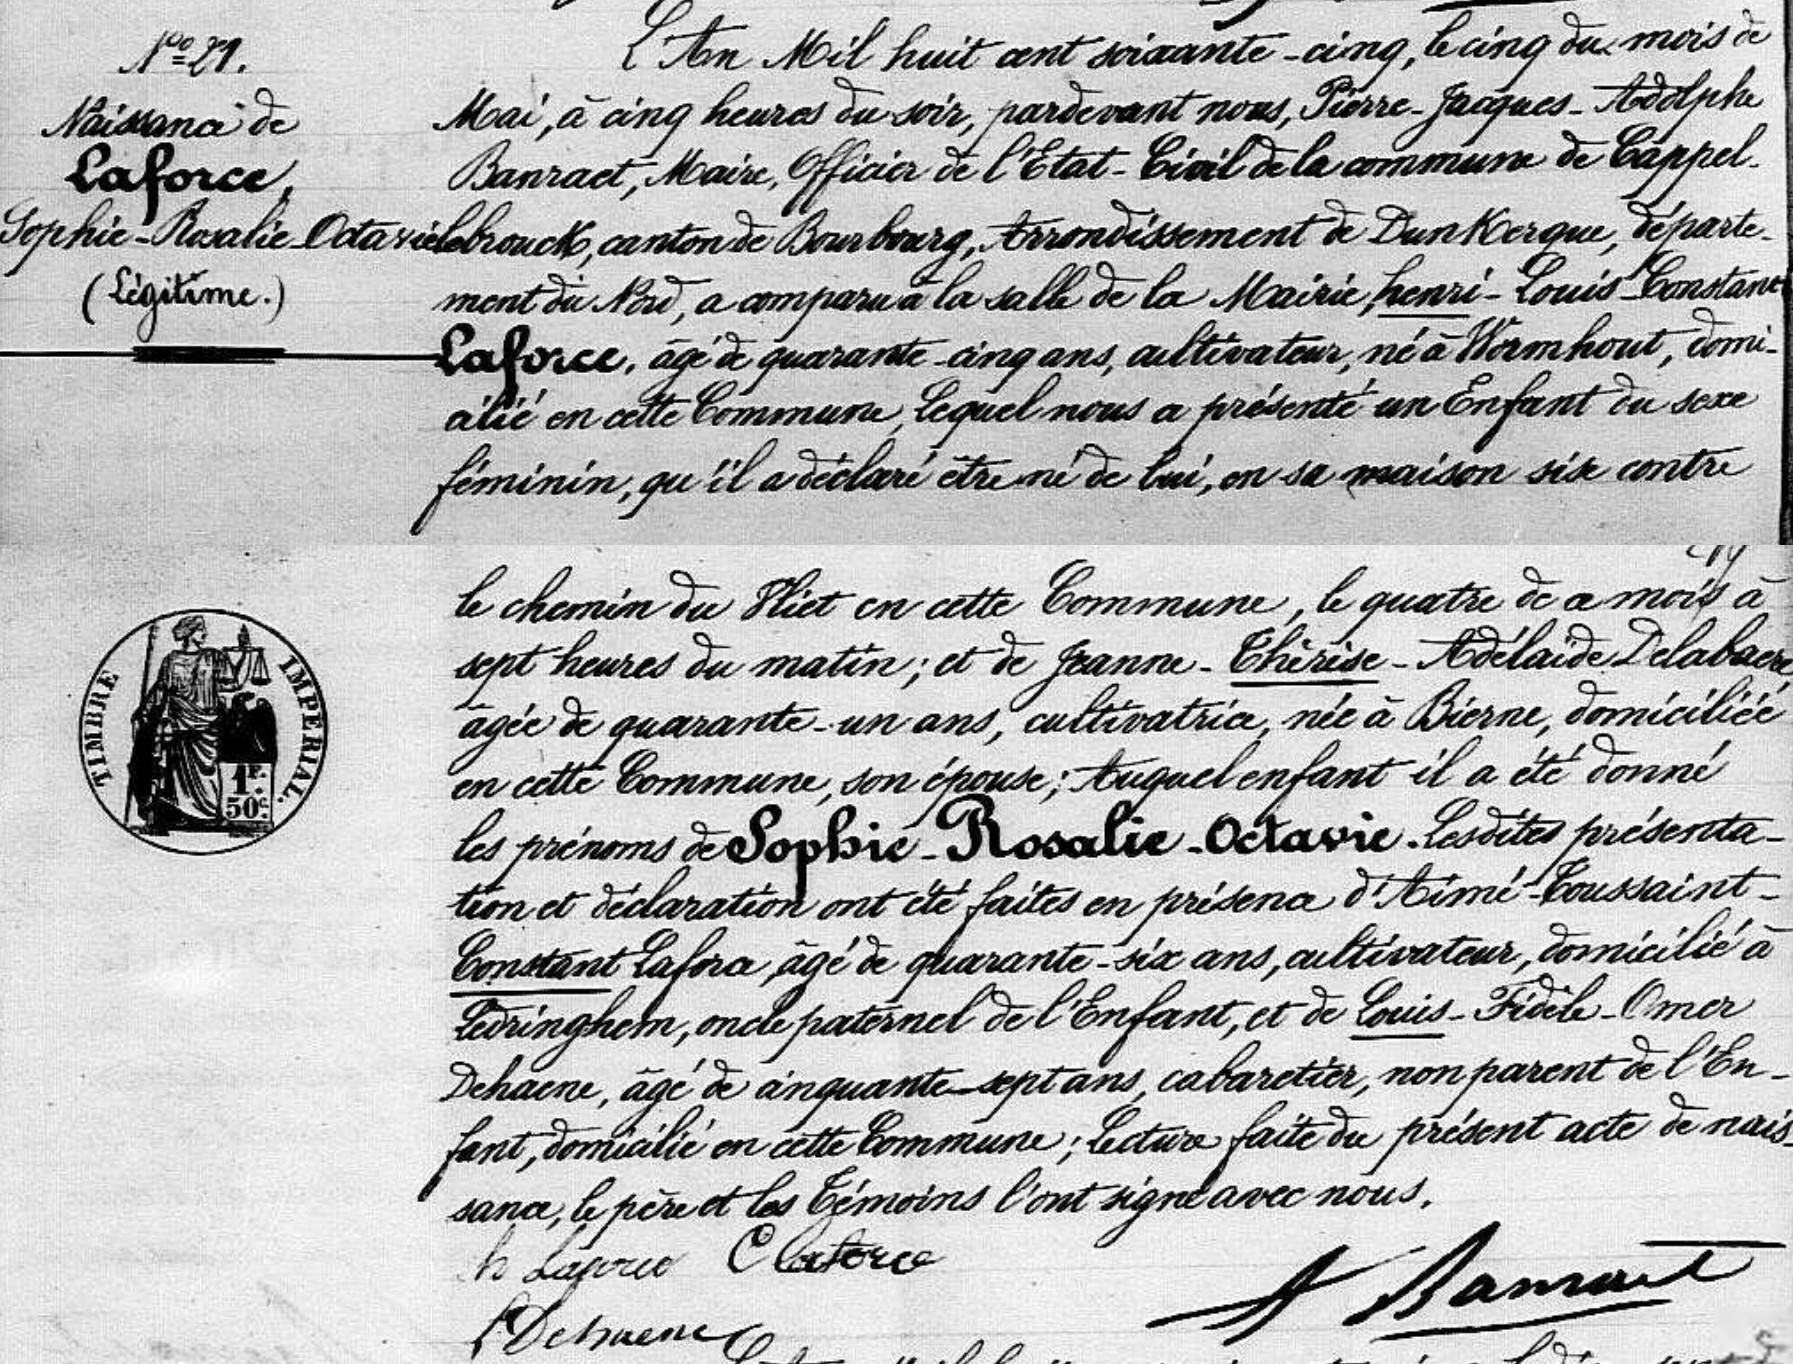 N° 21.
Naissance de
Laforce,
Sophie-Rosalie-Octavie
(Légitime.)
L'An Mil huit cent soixante-cinq, le cinq du mois de
Mai, à cinq heures du soir, pardevant nous, Pierre-Jacques-Adolphe
Banraet, Maire, Officier de l'Etat-Civil de la commune de Cappel-
lebrouck, canton de Bourbourg, Arrondissement de Dunkerque, départe-
ment du Nord, a comparu à la salle de la Mairie, henri-Louis-Constant
Laforce, âgé de quarante-cinq ans, cultivateur, né à Wormhout, domi-
cilié en cette Commune, lequel nous a présenté un Enfant du sexe
féminin, qu'il a déclaré être né de lui, en sa maison sise contre
le chemin du Vliet en cette Commune, le quatre de ce mois à
sept heures du matin; et de Jeanne-Thérèse-Adélaïde Delabaere
âgée de quarante-un ans, cultivatrice, née à Bierne, domiciliée
en cette Commune, son épouse; Auquel enfant il a été donné
les prénoms de Sophie-Rosalie-Octavie. Lesdites présenta-
tion et déclaration ont été faites en présence d'Aimé-Toussaint-
Constant Laforce, âgé de quarante-six ans, cultivateur, domicilié à
Ledringhem, oncle paternel de l'Enfant, et de Louis-Fidèle-Omer
Dehaene, âgé de cinquante-sept ans, cabaretier, non parent de l'En-
fant, domicilié en cette Commune; Lecture faite du présent acte de nais-
sance, le père et les Témoins l'ont signé avec nous.
h Laforce C Laforce
A Banraet
L Dehaene
TIMBRE IMPERIAL.
1F.
50c.